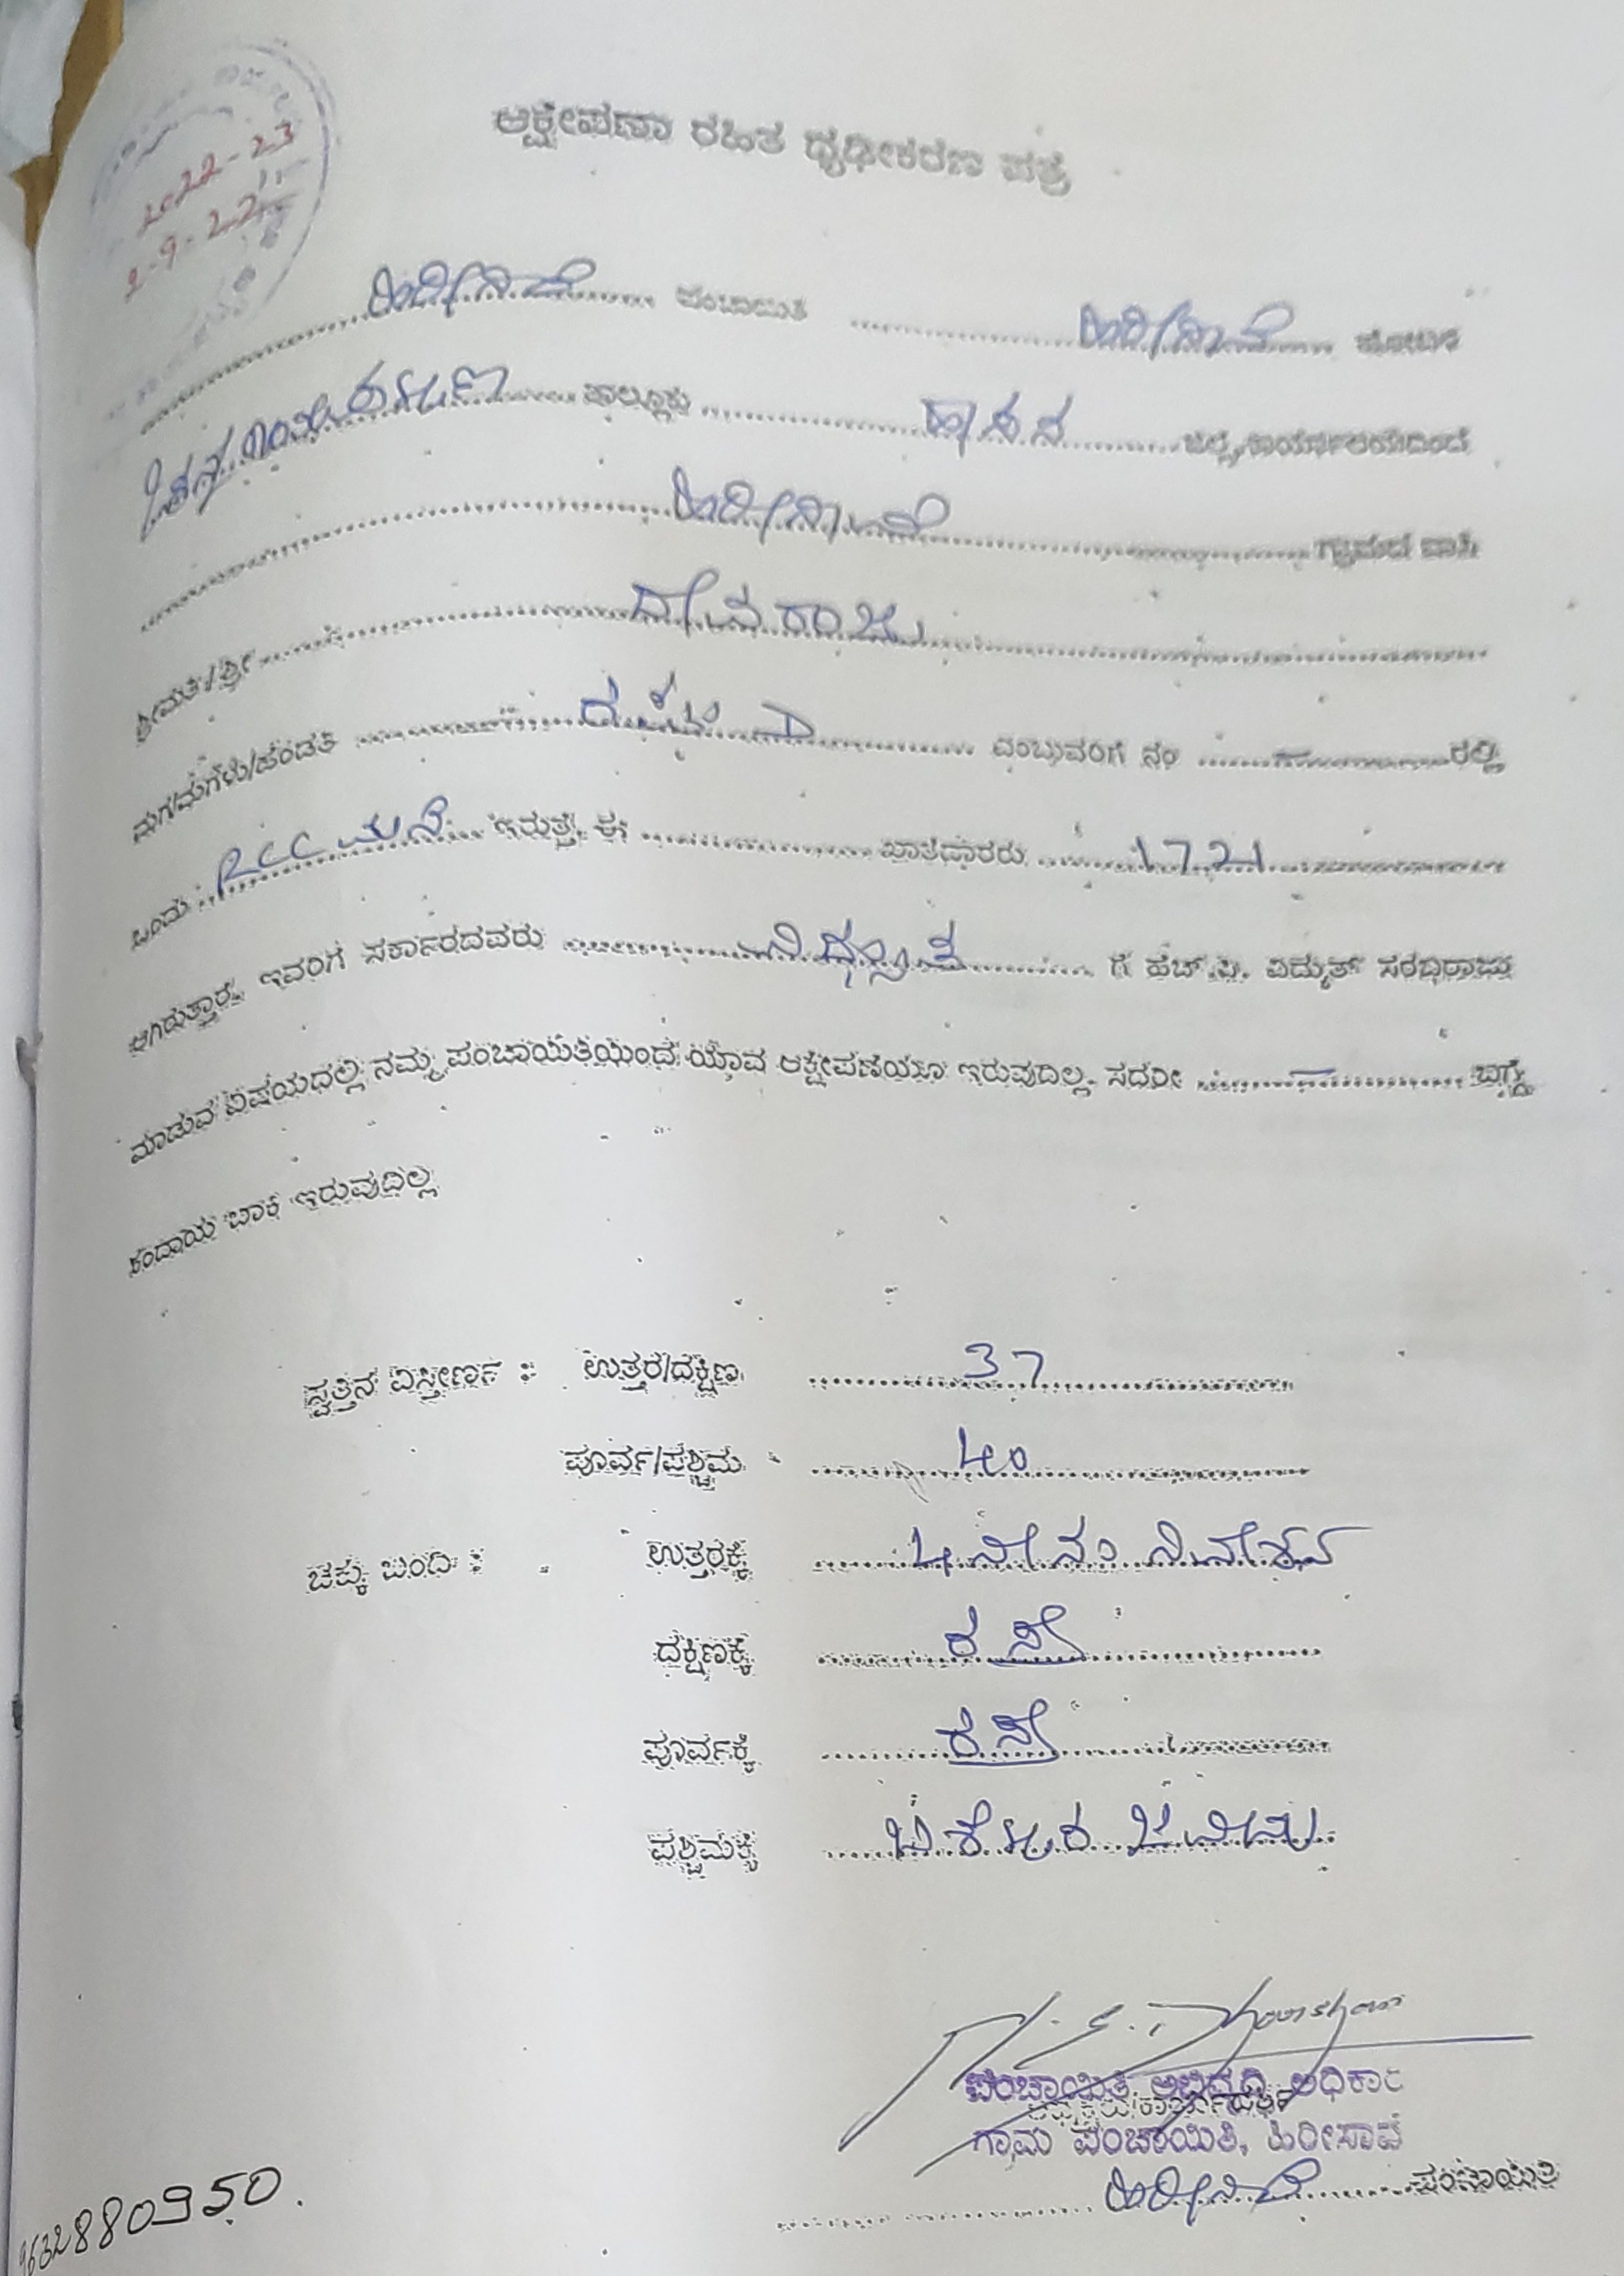 2022-23
2-9-22
ಆಕ್ಷೇಪಣಾ ರಹಿತ ಧೃಢೀಕರಣ ಪತ್ರ
ಹಿರೀಸಾವೆ ಪಂಚಾಯಿತಿ ಹಿರೀಸಾವೆ ಹೋಬಳಿ
ತಾಲ್ಲೂಕು ಹಾಸನ ಜಿಲ್ಲೆ, ಕಾರ್ಯಾಲಯದಿಂದ
ಹಿರೀಸಾವೆ ಗ್ರಾಮದ ವಾಸಿ
ಶ್ರೀಮತಿ/ಶ್ರೀ ದೇವರಾಜು
ಮಗ/ಮಗಳು/ಹೆಂಡತಿ ಎಂಬುವರಿಗೆ ನಂ - ರಲ್ಲಿ
ಒಂದು RCC ಮನೆ ಇರುತ್ತೆ, ಈ ಖಾತೆದಾರರು 1721
ಆಗಿರುತ್ತಾರೆ, ಇವರಿಗೆ ಸರ್ಕಾರದವರು ವಿದ್ಯುತ್ ಗೆ ಹೆಚ್.ಪಿ. ವಿದ್ಯುತ್ ಸರಬರಾಜು
ಮಾಡುವ ವಿಷಯದಲ್ಲಿ ನಮ್ಮ ಪಂಚಾಯಿತಿಯಿಂದ ಯಾವ ಆಕ್ಷೇಪಣೆಯೂ ಇರುವುದಿಲ್ಲ. ಸದರೀ - ಬಗ್ಗೆ
ಕಂದಾಯ ಬಾಕಿ ಇರುವುದಿಲ್ಲ
ಸ್ವತ್ತಿನ ವಿಸ್ತೀರ್ಣ : ಉತ್ತರ/ದಕ್ಷಿಣ 37
ಪೂರ್ವ/ಪಶ್ಚಿಮ 40
ಚೆಕ್ಕು ಬಂದಿ : ಉತ್ತರಕ್ಕೆ 4 ನೇ ನಂ ನಿವೇಶನ
ದಕ್ಷಿಣಕ್ಕೆ ರಸ್ತೆ
ಪೂರ್ವಕ್ಕೆ ರಸ್ತೆ
ಪಶ್ಚಿಮಕ್ಕೆ ಜಮೀನು
ಪಂಚಾಯಿತಿ ಅಭಿವೃದ್ಧಿ ಅಧಿಕಾರಿ
ಗ್ರಾಮ ಪಂಚಾಯಿತಿ, ಹಿರೀಸಾವೆ
ಹಿರೀಸಾವೆ ಪಂಚಾಯಿತಿ
9632880950.